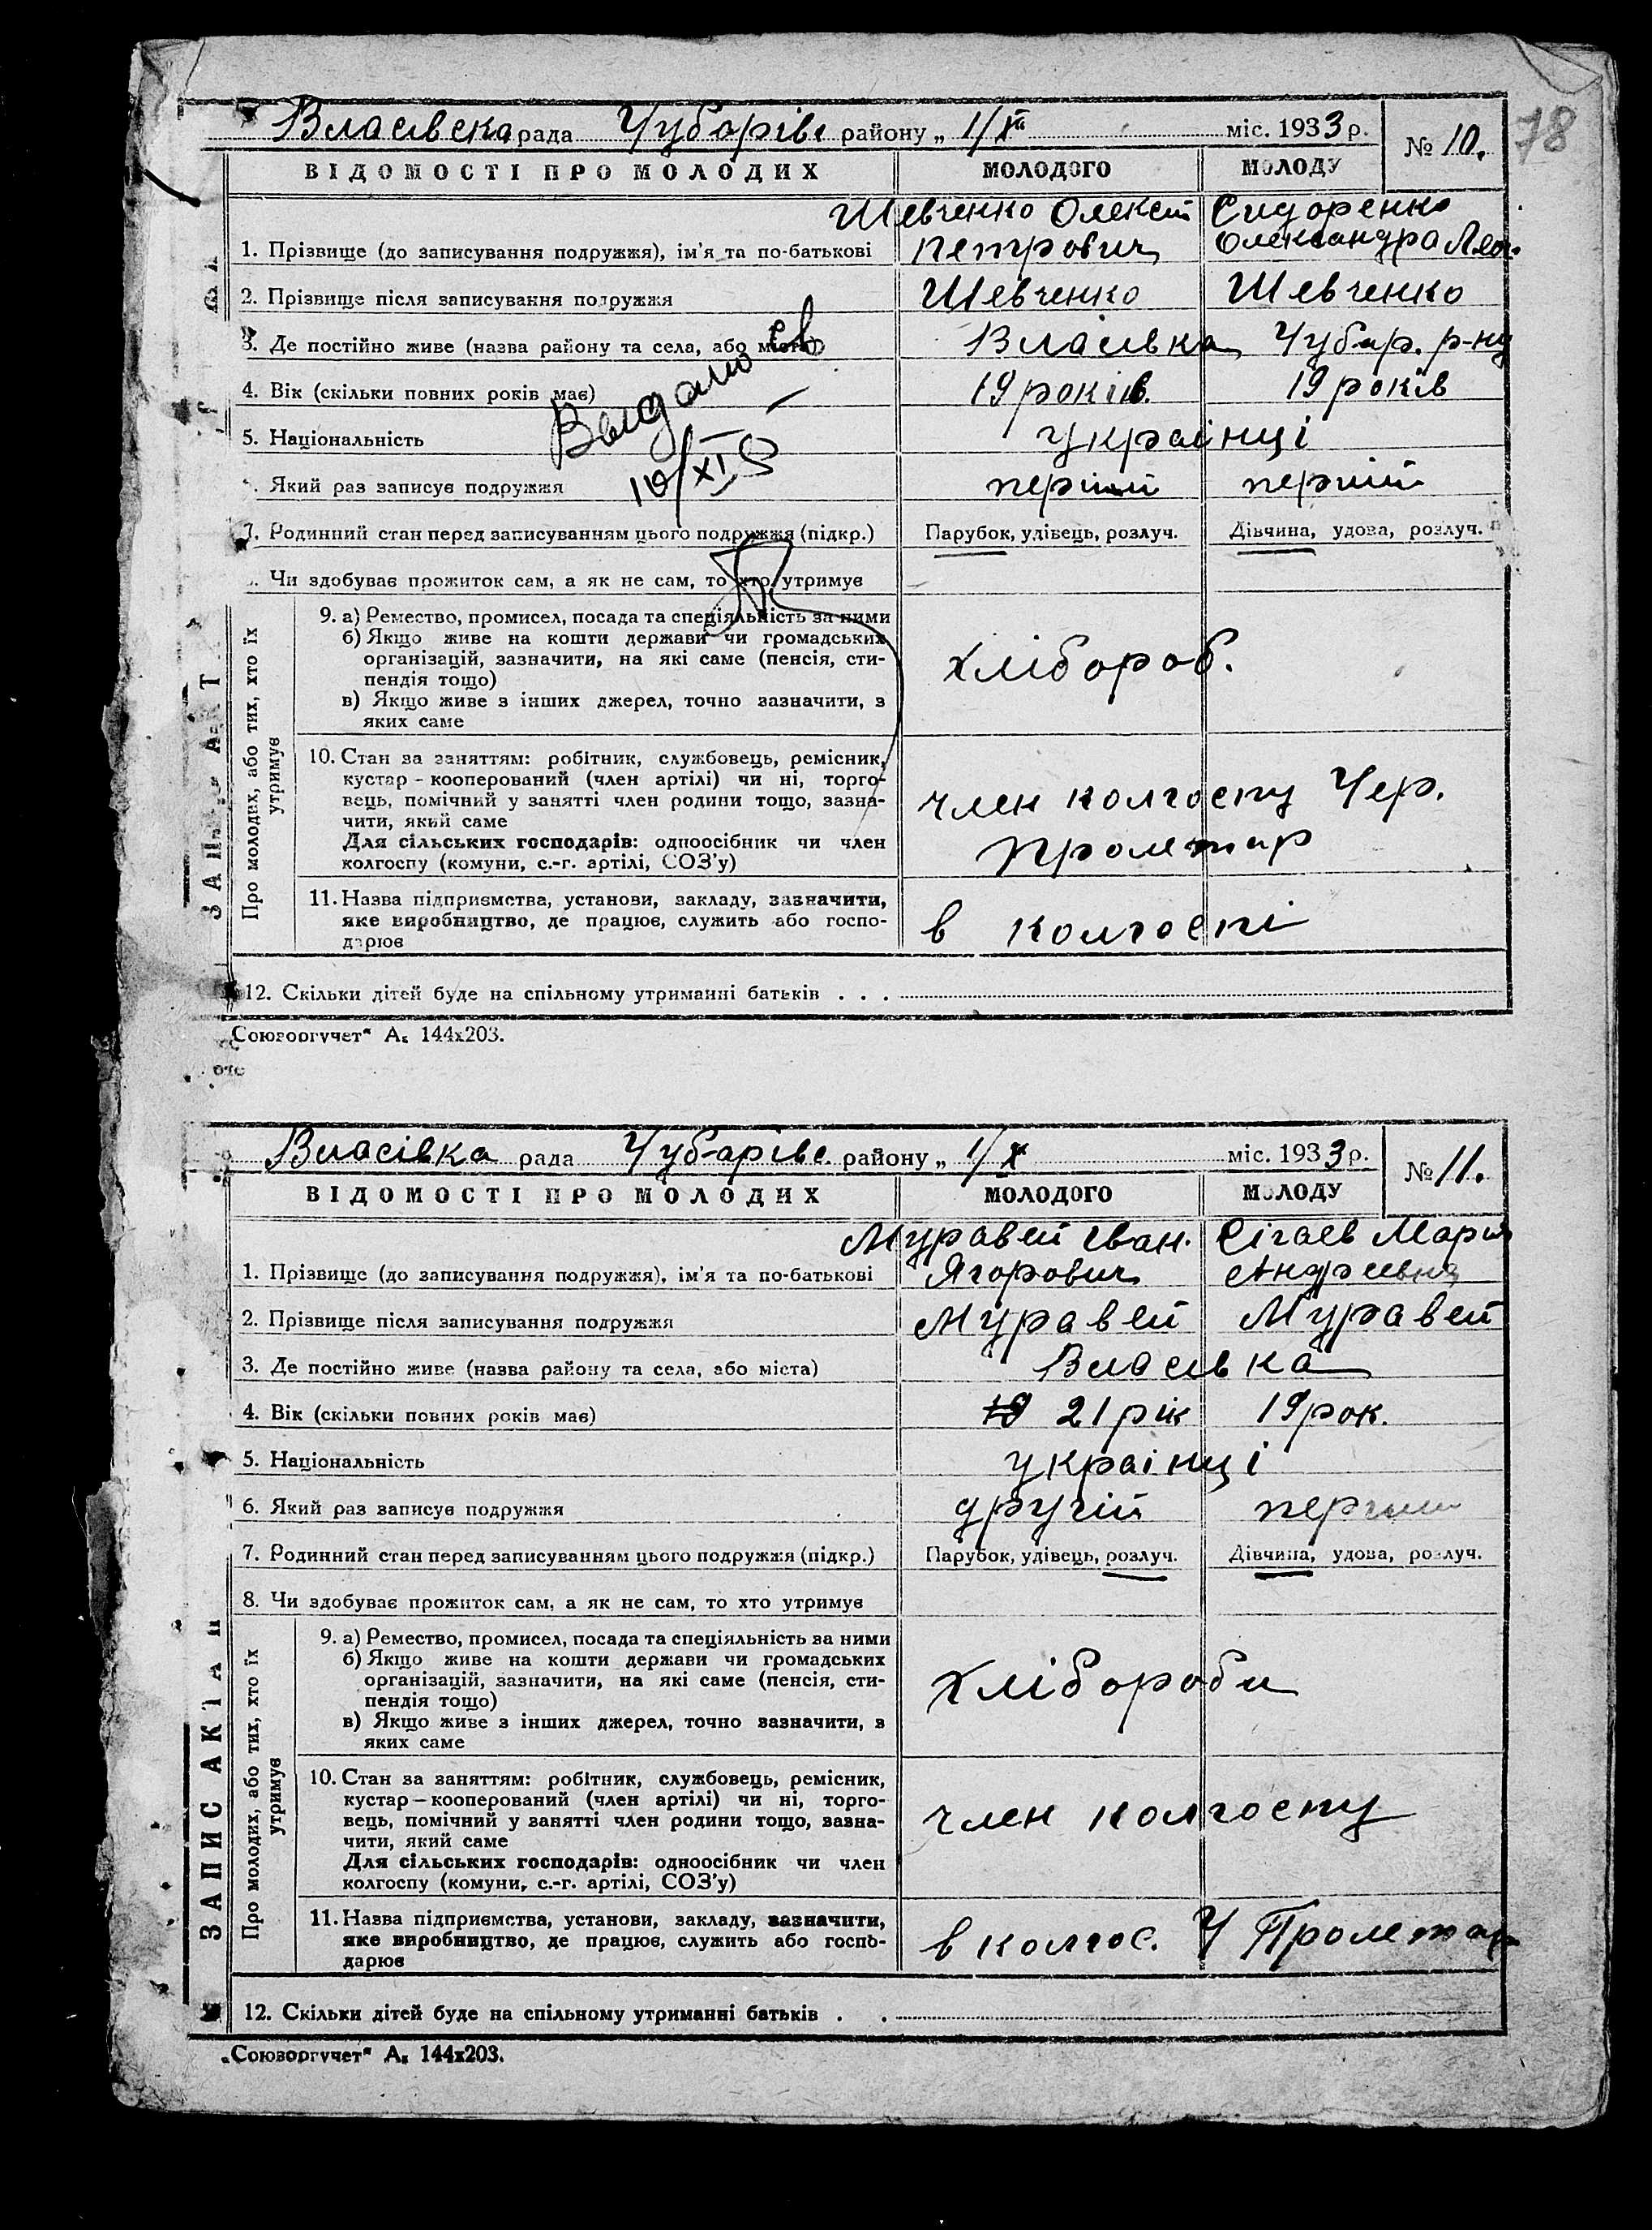 78
Власівска рада Чубарівс району „ 1/X міс. 1933 р. № 10.
ВІДОМОСТІ ПРО МОЛОДИХ МОЛОДОГО МОЛОДУ
Шевченко Олексій Сидоренко
1. Прізвище (до записування подружжя), ім'я та по-батькові Петрович Олександра
2. Прізвище після записування подружжя Шевченко Шевченко
3. Де постійно живе (назва району та села, або міста) Власівка Чубар. р-ну
4. Вік (скільки повних років має) 19 років. 19 років
5. Національність українці
Який раз записує подружжя перший перший
7. Родинний стан перед записуванням цього подружжя (підкр.) Парубок, удівець, розлуч. Дівчина, удова, розлуч.
Чи здобуває прожиток сам, а як не сам, то хто утримує
Выдано св
10/XI
ЗАПИС АКТ
Про молодих, або тих, хто їх
утримує
9. а) Ремество, промисел, посада та спеціяльність за ними
б) Якщо живе на кошти держави чи громадських
організацій, зазначити, на які саме (пенсія, сти-
пендія тощо)
в) Якщо живе з інших джерел, точно зазначити, з
яких саме
хлібороб.
10. Стан за заняттям: робітник, службовець, ремісник,
кустар – кооперований (член артілі) чи ні, торго-
вець, помічний у занятті член родини тощо, зазна-
чити, який саме
Для сільських господарів: одноосібник чи член
колгоспу (комуни, с.-г. артілі, СОЗ'у)
член колгоспу Чер.
Пролетар
11. Назва підприємства, установи, закладу, зазначити,
яке виробництво, де працює, служить або госпо-
дарює
в колгоспі
12. Скільки дітей буде на спільному утриманні батьків . . .
„Союзоргучет" А₅ 144х203.
Власівка рада Чубарівс. району „ 1/X міс. 1933 р. № 11.
ВІДОМОСТІ ПРО МОЛОДИХ МОЛОДОГО МОЛОДУ
Муравей Іван. Сігаєв Мария
1. Прізвище (до записування подружжя), ім'я та по-батькові Ягорович Андреевна
2. Прізвище після записування подружжя Муравей Муравей
3. Де постійно живе (назва району та села, або міста) Власівка
4. Вік (скільки повних років має) 19 21 рік 19 рок.
5. Національність українці
6. Який раз записує подружжя другій перший
7. Родинний стан перед записуванням цього подружжя (підкр.) Парубок, удівець, розлуч. Дівчина, удова, розлуч.
8. Чи здобуває прожиток сам, а як не сам, то хто утримує
ЗАПИС АКТА П
Про молодих, або тих, хто їх
утримує
9. а) Ремество, промисел, посада та спеціяльність за ними
б) Якщо живе на кошти держави чи громадських
організацій, зазначити, на які саме (пенсія, сти-
пендія тощо)
в) Якщо живе з інших джерел, точно зазначити, з
яких саме
хлібороби
10. Стан за заняттям: робітник, службовець, ремісник,
кустар – кооперований (член артілі) чи ні, торго-
вець, помічний у занятті член родини тощо, зазна-
чити, який саме
Для сільських господарів: одноосібник чи член
колгоспу (комуни, с.-г. артілі, СОЗ'у)
член колгоспу
11. Назва підприємства, установи, закладу, зазначити,
яке виробництво, де працює, служить або госпо-
дарює
в колгос. Ч Пролетар
12. Скільки дітей буде на спільному утриманні батьків . .
„Союзоргучет" А₅ 144х203.